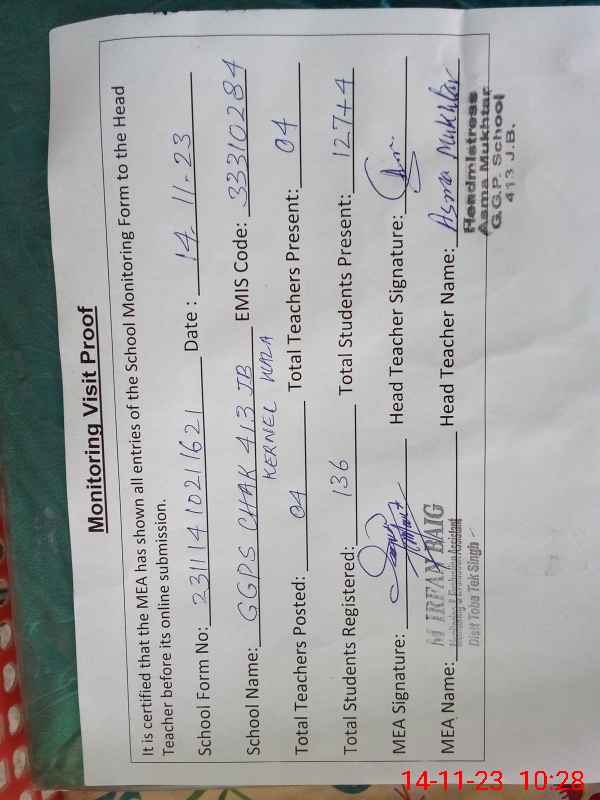 Monitoring Visit Proof
It is certified that the MEA has shown all entries of the School Monitoring Form to the Head
Teacher before its online submission.
School Form No: 23111410211621 Date : 14-11-23
School Name: GGPS CHAK 413 JB EMIS Code: 33310284
KERNEL WALA
Total Teachers Posted: 04 Total Teachers Present: 04
Total Students Registered: 136 Total Students Present: 127+4
MEA Signature: Head Teacher Signature:
MEA Name: M IRFAN BAIG Head Teacher Name: Asma Mukhtar
Monitoring & Evaluation Assistant
Distt Toba Tek Singh
Headmistress
Asma Mukhtar
G.G.P. School
413 J.B.
14-11-23 10:28